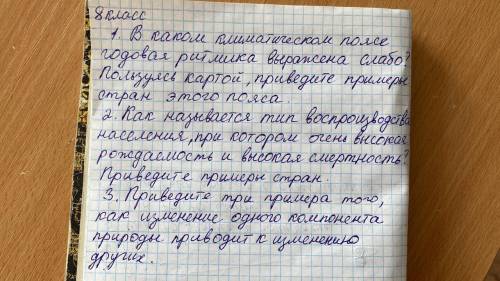 8 класс
1. В каком климатическом поясе
годовая ритмика выражена слабо?
Пользуясь картой, приведите примеры
стран этого пояса.
2. Как называется тип воспроизводства
населения, при котором очень высокая
рождаемость и высокая смертность?
Приведите примеры стран.
3. Приведите три примера того,
как изменение одного компонента
природы приводит к изменению
других.